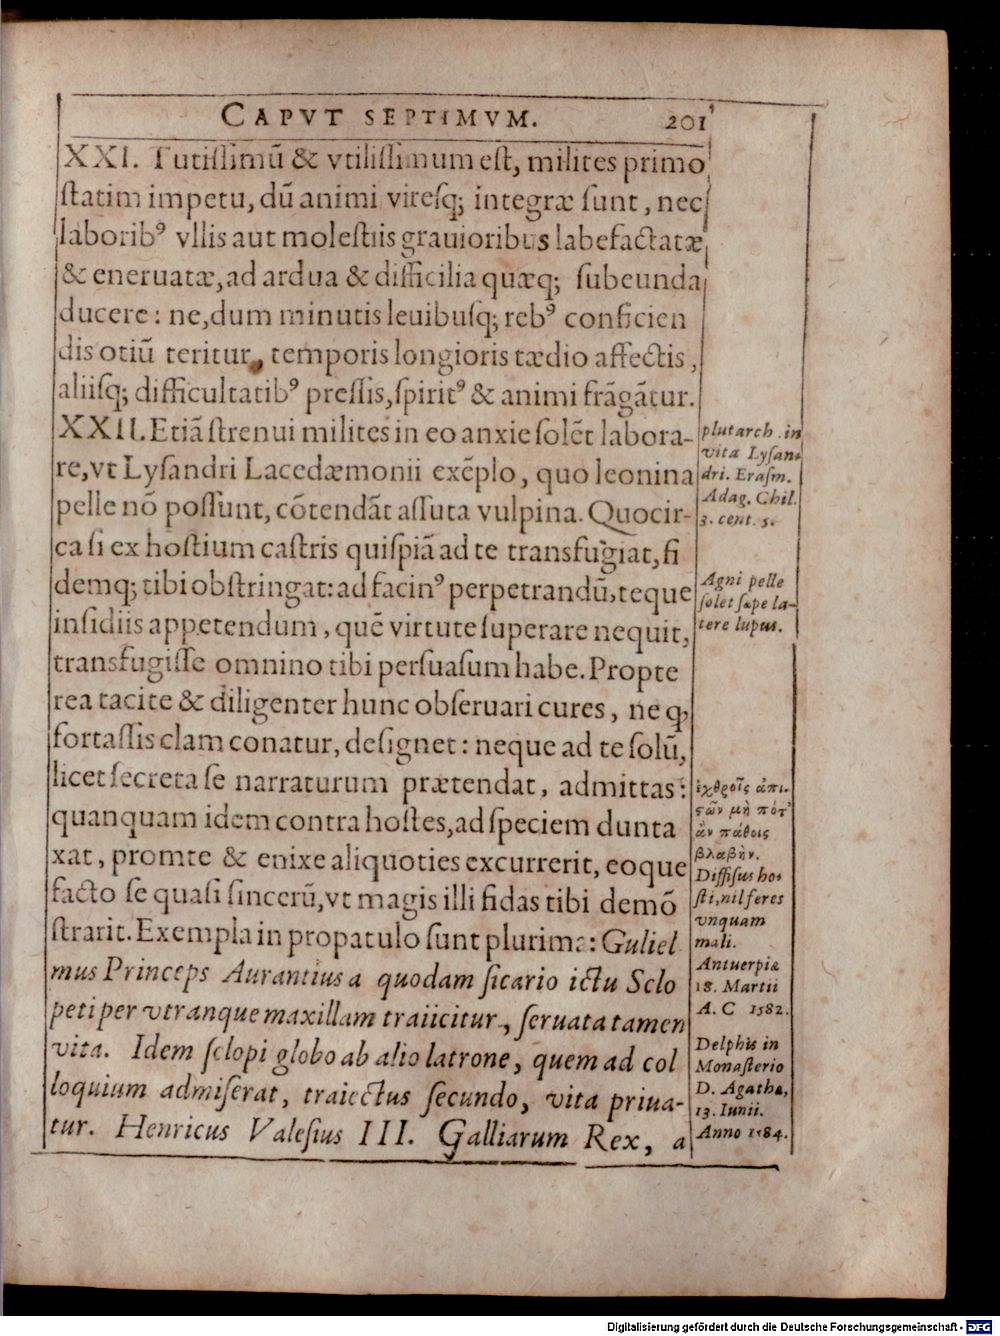 CAPVT SEPTIMVM. 201
XXI. Tutissimū & vtilissimum est, milites primo
statim impetu, dū animi viresq; integræ sunt, nec
laborib⁹ vllis aut molestiis grauioribus labefactatæ
& eneruatæ, ad ardua & difficilia quæq; subeunda
ducere: ne, dum minutis leuibusq; reb⁹ conficien
dis otiū teritur, temporis longioris tædio affectis,
aliisq; difficultatib⁹ pressis, spirit⁹ & animi frāgātur.
XXII. Etiā strenui milites in eo anxie solēt labora-
re, vt Lysandri Lacedæmonii exēplo, quo leonina
pelle nō possunt, cōtendāt assuta vulpina. Quocir-
ca si ex hostium castris quispiā ad te transfugiat, fi
demq; tibi obstringat: ad facin⁹ perpetrandū, teque
insidiis appetendum, quē virtute superare nequit,
transfugisse omnino tibi persuasum habe. Propte
rea tacite & diligenter hunc obseruari cures, ne q,
fortassis clam conatur, designet: neque ad te solū,
licet secreta se narraturum prætendat, admittas:
quanquam idem contra hostes, ad speciem dunta
xat, promte & enixe aliquoties excurrerit, eoque
facto se quasi sincerū, vt magis illi fidas tibi demō
strarit. Exempla in propatulo sunt plurima: Guliel
mus Princeps Aurantius a quodam sicario ictu Sclo
peti per vtranque maxillam traiicitur, seruata tamen
vita. Idem sclopi globo ab alio latrone, quem ad col
loquium admiserat, traiectus secundo, vita priua-
tur. Henricus Valesius III. Galliarum Rex, a
plutarch. in
vita Lysan-
dri. Erasm.
Adag. Chil.
3. cent. 5.
Agni pelle
solet sæpe la-
tere lupus.
ἐχθροῖς ἀπι-
ςῶν μὴ πότ'
ἂν πάθοις
βλαβὴν.
Diffisus ho-
sti, nil feres
vnquam
mali.
Antuerpiæ
18. Martii
A. C 1582.
Delphis in
Monasterio
D. Agathæ,
13. Iunii.
Anno 1584.
Digitalisierung gefördert durch die Deutsche Forschungsgemeinschaft - DFG